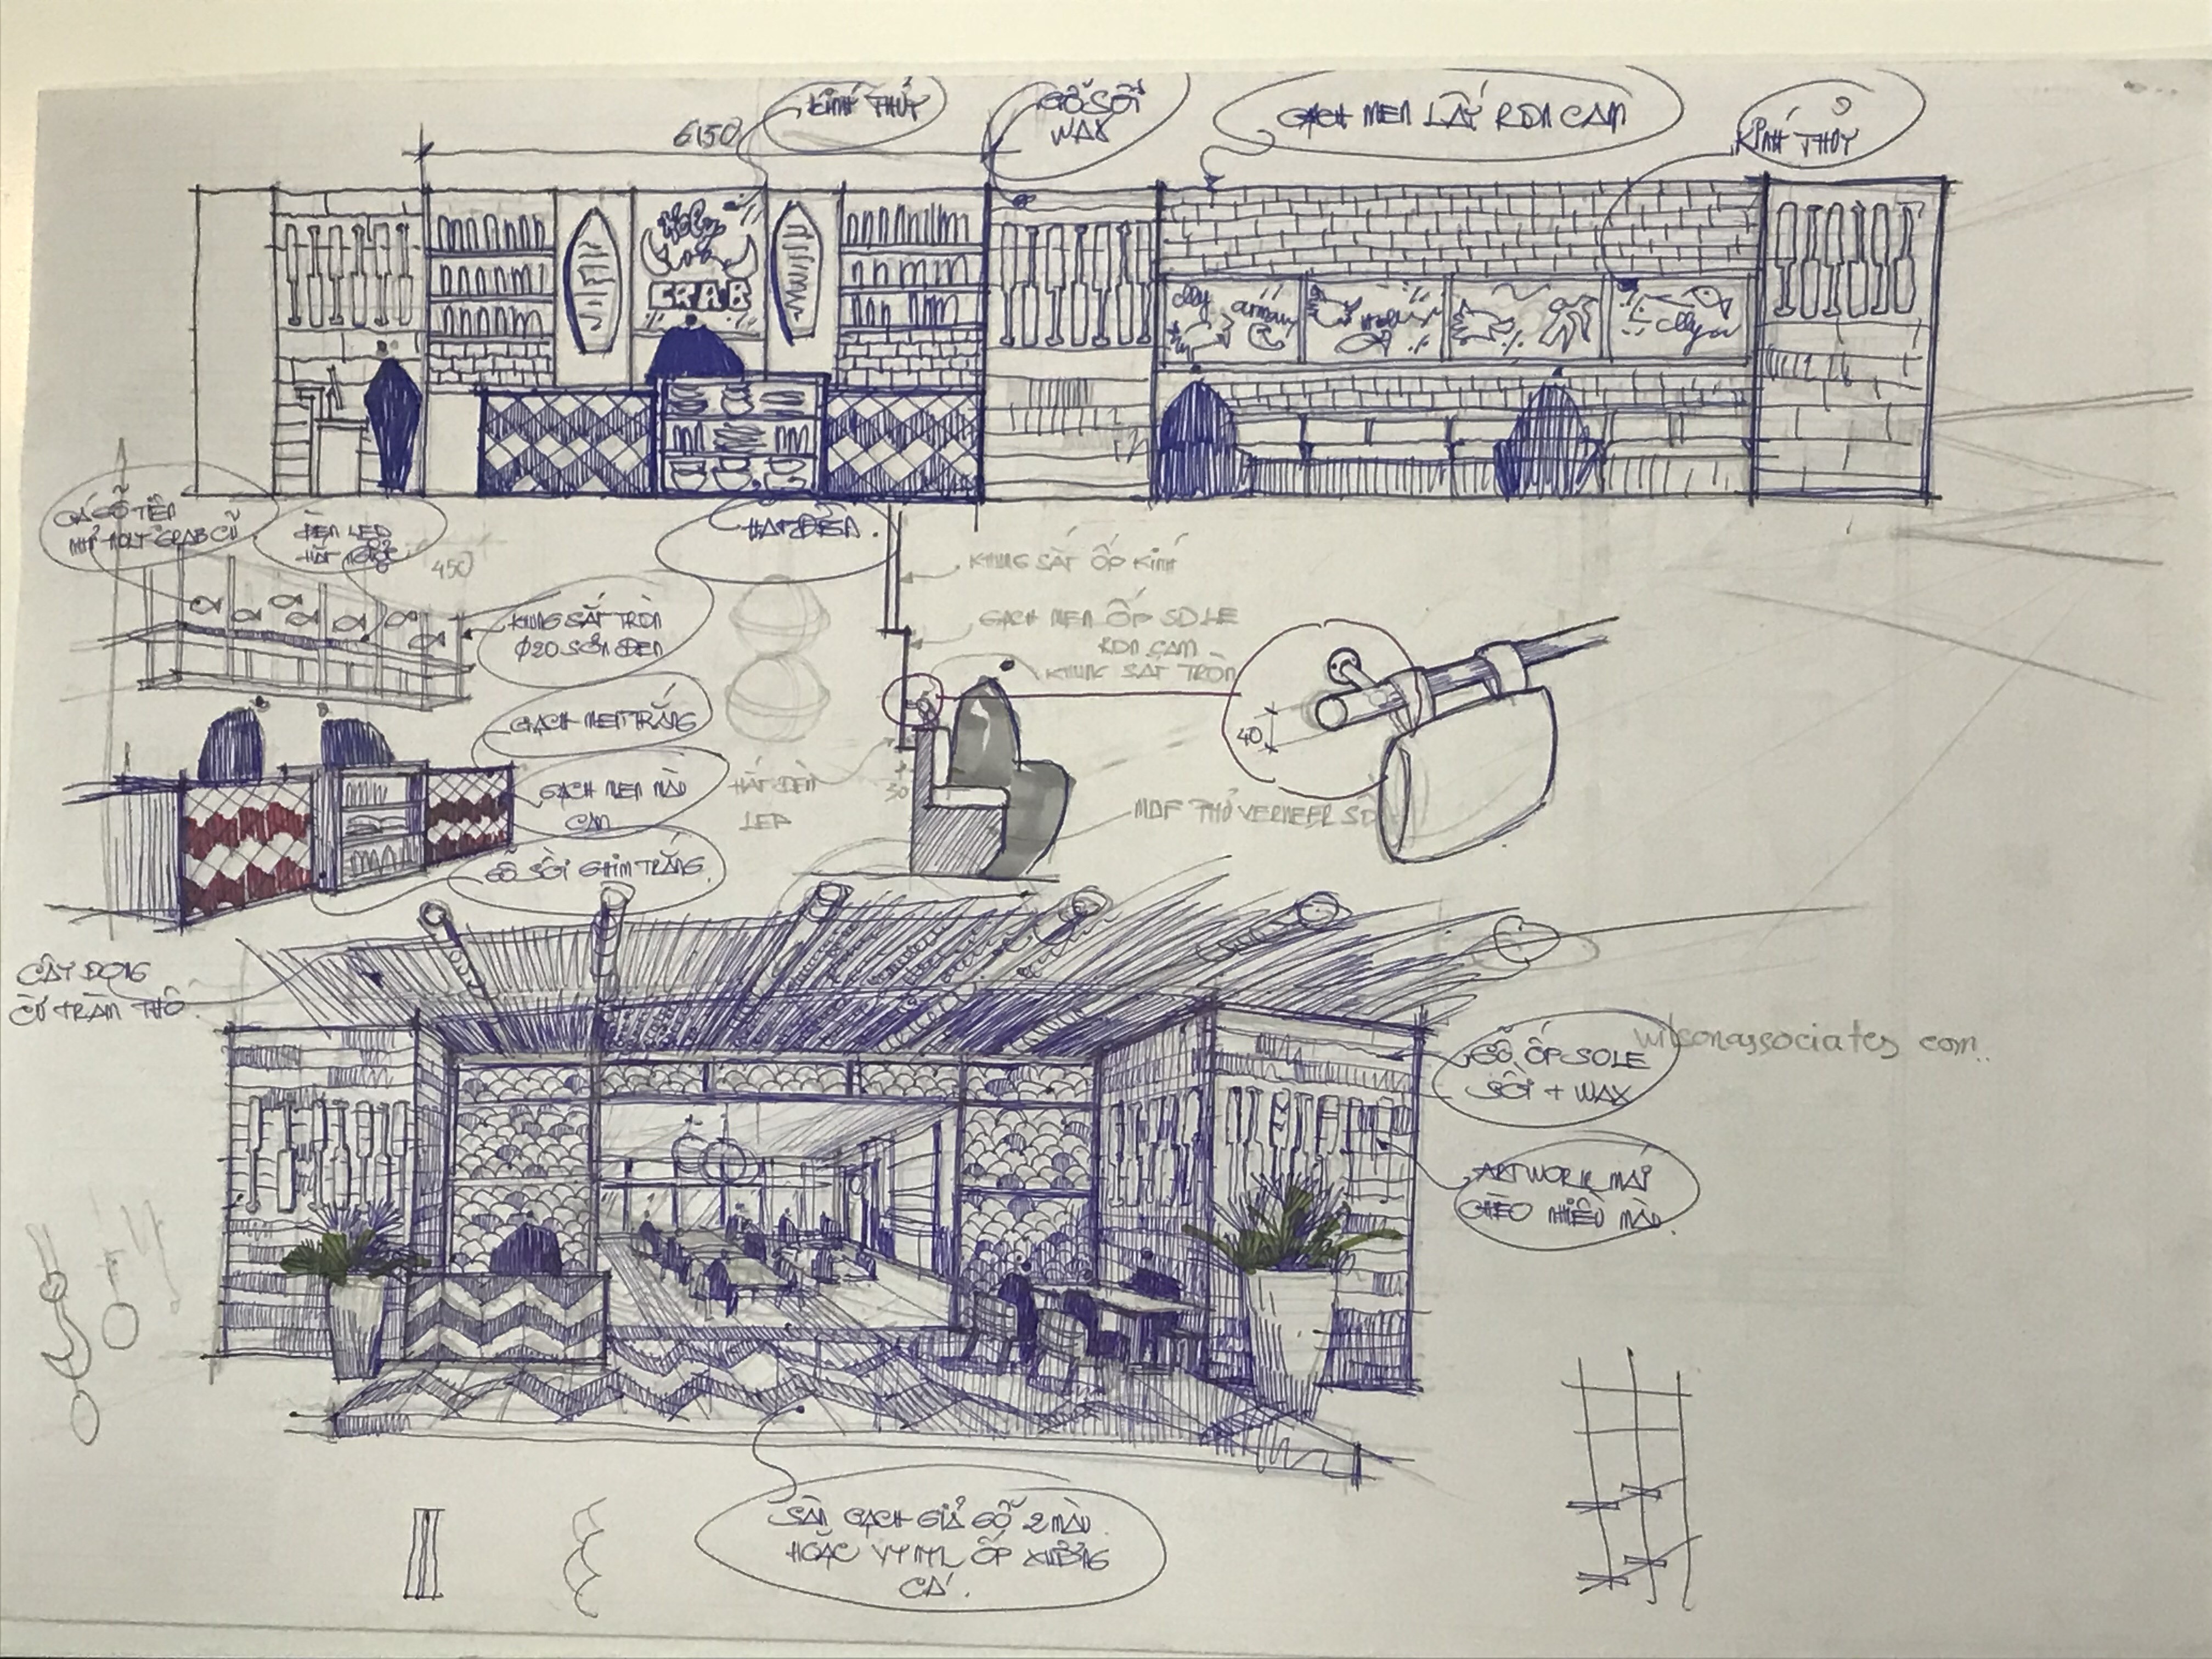 6150
KÍNH THỦY
GỖ SỒI
WAX
GẠCH MEN LẤY RON CAM
KÍNH THỦY
Holy
CRAB
GỖ TIỆN
HOLY CRAB CŨ
ĐÈN LED
HẮT
450
HẮT ĐÈN.
KHUNG SẮT ỐP KÍNH
KHUNG SẮT TRÒN
Φ20 SƠN ĐEN
GẠCH MEN ỐP SOLE
RON CAM
KHUNG SẮT TRÒN
40
GẠCH MEN TRẮNG
GẠCH MEN MÀU
CAM
HẮT ĐÈN
LED
50
MDF PHỦ VERNEER SỒI
GỖ SỒI GHIM TRẮNG.
CÂY DỌNG
CỪ TRÀM THÔ.
GỖ ỐP SOLE
SỒI + WAX
wilsonassociates com..
ARTWORK MÁI
CHÈO NHIỀU MÀU.
SÀN GẠCH GIẢ GỖ 2 MÀU
HOẶC VYNYL ỐP XƯƠNG
CÁ.